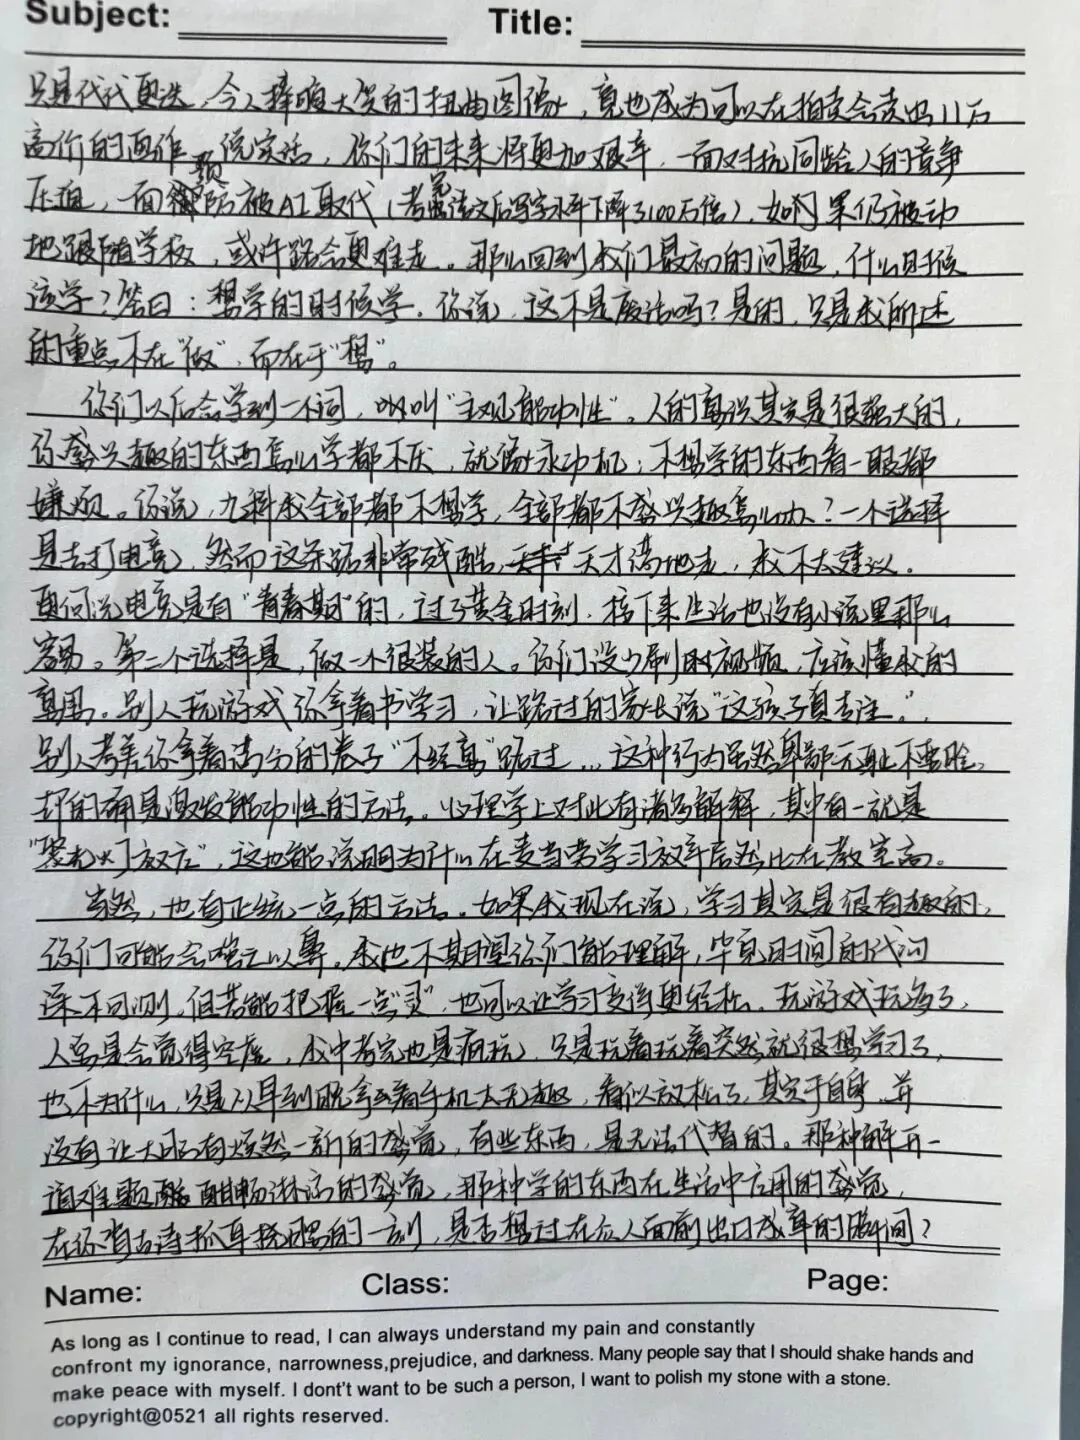 Subject: Title:
只是代代更迭，今人捧腹大笑的扭曲图像，竟也成为可以在拍卖会卖出11万
高价的画作。说实话，你们的未来将更加艰辛，一面对抗同龄人的竞争
压迫，一面预防被AI取代（考完语文后写字水平下降了100万倍），如果仍被动
地跟随学校，或许路会更难走。那么回到我们最初的问题，什么时候
该学？答曰：想学的时候学。你说，这不是废话吗？是的，只是我所述
的重点不在“做”，而在于“想”。
你们以后会学到一个词，叫“主观能动性”。人的意识其实是很强大的，
你感兴趣的东西怎么学都不厌，就像永动机；不想学的东西看一眼都
嫌烦。你说，九科我全部都不想学，全部都不感兴趣怎么办？一个选择
是去打电竞，然而这条路非常残酷，天才满地走，我不太建议。
更何况电竞是有“青春期”的，过了黄金时刻，接下来生活也没有小说里那么
容易。第二个选择是，做一个很装的人。你们没少刷短视频，应该懂我的
意思。别人玩游戏你拿着书学习，让路过的家长说“这孩子真专注。”，
别人考差你拿着满分的卷子“不经意”路过...这种行为虽然卑鄙无耻不要脸，
却的确是激发能动性的方法。心理学上对此有诸多解释，其中有一就是
“聚光灯效应”，这也能说明为什么在麦当劳学习效率居然比在教室高。
当然，也有正统一点的方法。如果我现在说，学习其实是很有趣的，
你们可能会嗤之以鼻。我也不期望你们能理解，毕竟时间的代沟
深不可测，但若能把握一点“灵”，也可以让学习变得更轻松。玩游戏玩多了，
人总是会觉得空虚，我中考完也是疯玩，只是玩着玩着突然就很想学习了，
也不为什么，只是从早到晚拿着手机太无趣，看似放松了，其实于自身，并
没有让大脑有焕然一新的感觉，有些东西，是无法代替的。那种解开一
道难题酣畅淋漓的感觉，那种学的东西在生活中应用的感觉，
在你背古诗抓耳挠腮的一刻，是否想过在众人面前出口成章的瞬间？
Name: Class: Page:
As long as I continue to read, I can always understand my pain and constantly
confront my ignorance, narrowness,prejudice, and darkness. Many people say that I should shake hands and
make peace with myself. I dont't want to be such a person, I want to polish my stone with a stone.
copyright@0521 all rights reserved.